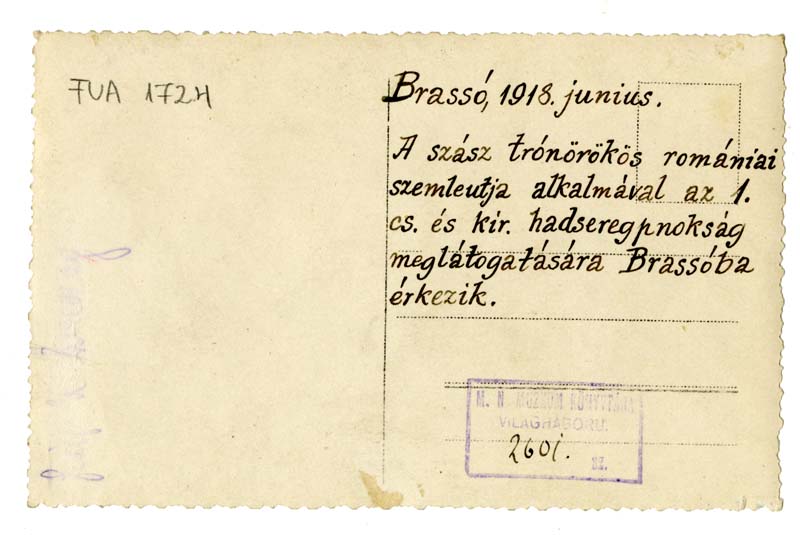 FUA 1724
Brassó, 1918. junius.
A szász trónörökös romániai
szemleutja alkalmával az 1.
cs. és kir. hadseregpnokság
meglátogatására Brassóba
érkezik.
M. N. MUZEUM KÖNYVTÁRA
VILÁGHÁBORU.
2601. sz.